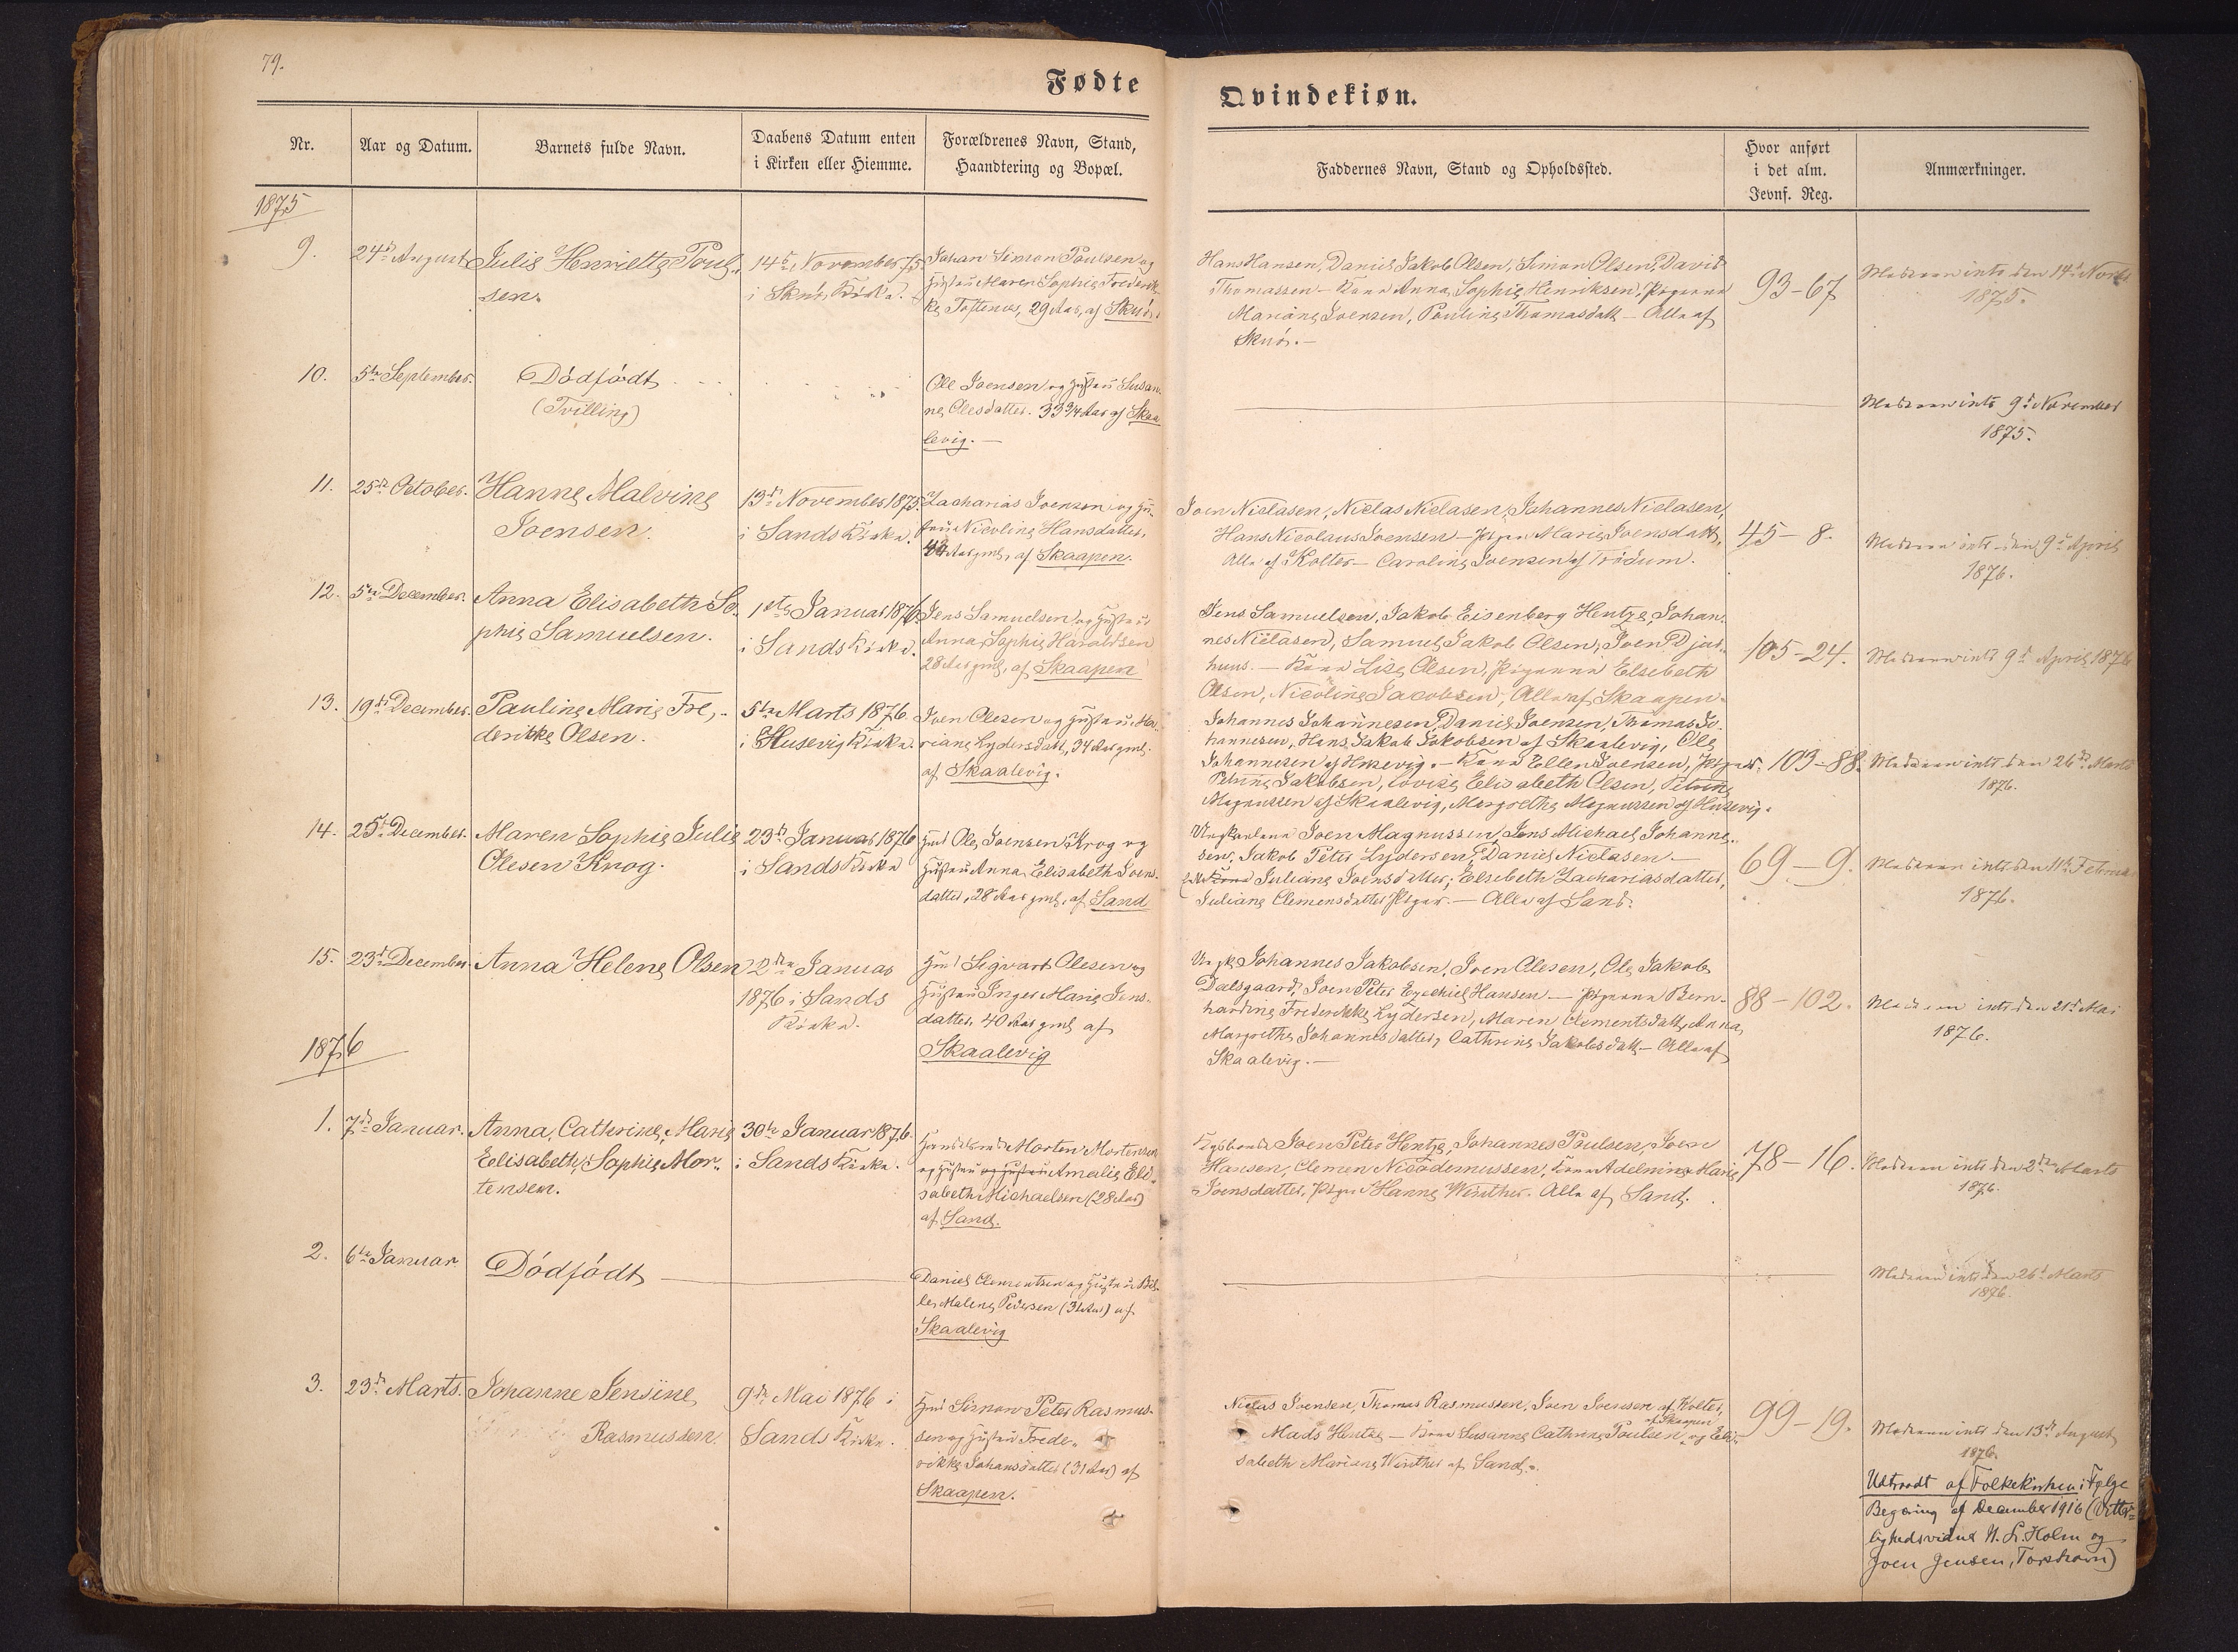 79.
Fødte
Qvindekiøn.
Nr.
Aar og Datum.
Barnets fulde Navn.
Daabens Datum enten
i Kirken eller Hiemme.
Forældrenes Navn, Stand,
Haandtering og Bopæl.
Faddernes Navn, Stand og Opholdssted.
Hvor anført
i det alm.
Jevnf. Reg.
Anmærkninger.
1875
9.
24de August
Julie Henriette Poul-
sen.
14de November 75
i Skuø Kirke.
Johan Simon Poulsen og
Hustru Maren Sophie Frederik-
ke Toftenes, 29 Aar, af Skuø.
Hans Hansen, Daniel Jakob Olsen, Simon Olsen, David
Thomassen — Kone Anna Sophie Henriksen, Pigerne
Mariane Joensen, Pouline Thomasdatt — Alle af
Skuø. —
93-67
den 14de Novbr
1875.
10.
5te September.
Dödfödt
(Tvilling)
Ole Joensen og Hustru Susan-
ne Olesdatter. 33 3/4 Aar af Skaa-
levig. —
9de November
1875.
11.
25de October.
Hanne Malvine
Joensen.
13de November 1875
i Sands Kirke.
Zacharias Joensen og Hu-
stru Nicoline Hansdatter,
Aar gml, af Skaapen.
Joen Nielasen, Nielas Nielasen, Johannes Nielasen,
Hans Nicolaus Joensen — Pigen Marie Joensdatt,
Alle af Kolter — Caroline Joensen af Trödum.
45-8.
den 9de April
1876.
12.
5te December.
Anna Elisabeth So-
phie Samuelsen.
1ste Januar 1876
i Sands Kirke.
Jens Samuelsen og Hustru
Anna Sophie Haraldsen
28 Aar gml, af Skaapen
Jens Samuelsen, Jakob Eisenberg Hentze, Johan-
nes Nielasen, Samuel Jakob Olsen, Joen Djur-
huus. — Kone Lise Olsen, Pigerne Elsebeth
Olsen, Nicoline Jacobsen, Alle af Skaapen.
105-24.
9de April 1876
13.
19de December.
Pauline Marie Fre,-
derikke Olsen.
5te Marts 1876.
i Husevig Kirke.
Joen Olesen og Hustru Ma-
riane Lydersdatt, 34 Aar gml.
af Skaalevig.
Johannes Johannesen, Daniel Joensen, Thomas Jo-
hannesen, Hans Jakob Jakobsen af Skaalevig, Ole
Johannesen af Husevig. — Kone Ellen Joensen, Piger.
Petrine Jakobsen, Lovise Elisabeth Olsen, Petrine
Magnussen af Skaalevig, Margrethe Magnussen af Husevig.
103-88.
den 26de Marts
1876.
14.
25de December.
Maren Sophie Julie
Olesen Krog.
23de Januar 1876
i Sands Kirke
Hmd Ole Joensen Krog og
Hustru Anna Elisabeth Joens-
datter, 28 Aar gml, af Sand
Ungkarlene Joen Magnussen, Jens Michael Johanne-
sen, Jakob Peter Lydersen, Daniel Nielasen. —
Kone Juliane Joensdatter; Elsebeth Zachariasdatter,
Juliane Clemensdatter Piger. — Alle af Sand.
69-9.
den 11te Februar
1876.
15.
23de December.
Anna Helene Olsen
2den Januar
1876 i Sands
Kirke.
Hmd Sigvart Olesen og
Hustru Inger Marie Jens-
datter, 40 Aar gml af
Skaalevig
Johannes Jakobsen, Joen Olesen, Ole Jakob
Dalsgaard, Joen Peter Ezechiel Hansen — Pigerne Bern-
hardine Frederikke Lydersen, Maren Clementsdatt, Anna
Margrethe Johannesdatter, Cathrine Jakobsdatt — Alle af
Skaalevig. —
88-102.
den 21de Mai
1876.
1876
1.
7de Januar.
Anna Cathrine Marie
Elisabeth Sophie Mor-
tensen.
30te Januar 1876.
i Sands Kirke.
Morten Mortensen
og Hustru og Hustru Amalie Eli-
sabeth Michaelsen (28 Aar)
af Sand.
Joen Peter Hentze, Johannes Poulsen, Joen
Hansen, Clemen Nicodemussen, Kone Adelmine Marie
Joensdatter, Pigen Hanne Winther. Alle af Sand.
78-16.
den 2den Marts
1876.
2.
6te Januar
Dödfödt
Daniel Clementsen og Hustru Bil-
le Malene Pedersen (31 Aar) af
Skaalevig
den 26de Marts
1876.
3.
23de Marts.
Johanne Jensine
Rasmussen.
9de Mai 1876 i
Sands Kirke.
Hmd Simon Peter Rasmus-
sen og Hustru Frede-
rikke Johansdatter (31 Aar) af
Skaapen.
Nielas Joensen, Thomas Rasmussen, Joen Joensen af Kolter,
af Skaapen
Mads Hentze — Kone Susanne Cathrine Poulsen og Eli-
sabeth Mariane Winther af Sand.
99-19.
den 13de August
1876.
Udtraadt af Folkekirken i Følge
Begæring af December 1916 (Vitter-
lighedsvidne H. L. Holm og
Joen Jensen, Torshavn)